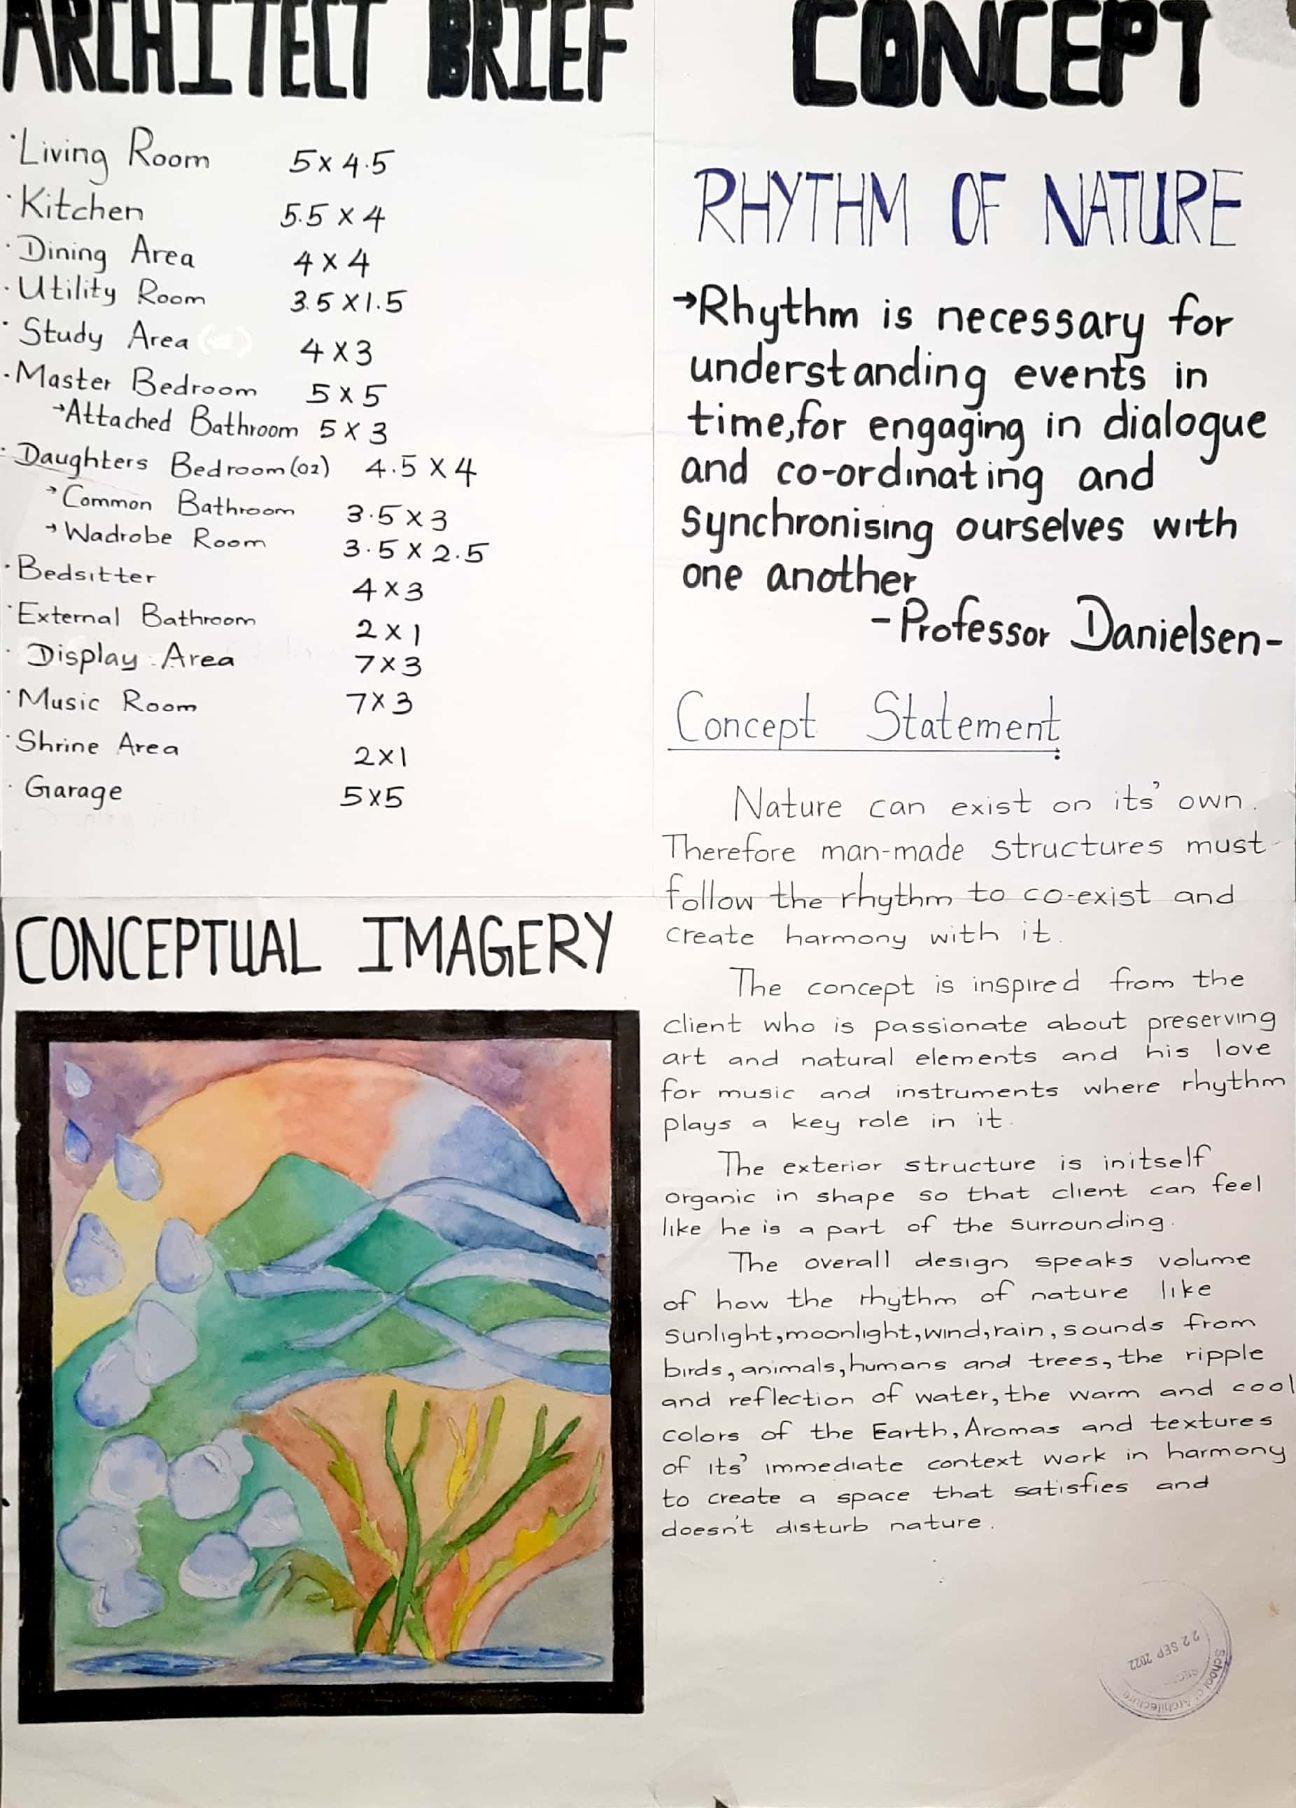 ARCHITECT BRIEF
·Living Room 5 x 4.5
·Kitchen 5.5 x 4
·Dining Area 4 x 4
·Utility Room 3.5 x 1.5
·Study Area 4 x 3
·Master Bedroom 5 x 5
→Attached Bathroom 5 x 3
·Daughters Bedroom (02) 4.5 x 4
→Common Bathroom 3.5 x 3
→Wadrobe Room 3.5 x 2.5
·Bedsitter 4 x 3
·External Bathroom 2 x 1
·Display Area 7 x 3
·Music Room 7 x 3
·Shrine Area 2 x 1
·Garage 5 x 5
CONCEPTUAL IMAGERY
CONCEPT
RHYTHM OF NATURE
→Rhythm is necessary for
understanding events in
time,for engaging in dialogue
and co-ordinating and
Synchronising ourselves with
one another
-Professor Danielsen-
Concept Statement:
Nature can exist on its' own.
Therefore man-made structures must
follow the rhythm to co-exist and
create harmony with it.
The concept is inspired from the
client who is passionate about preserving
art and natural elements and his love
for music and instruments where rhythm
plays a key role in it.
The exterior structure is initself
organic in shape so that client can feel
like he is a part of the surrounding.
The overall design speaks volume
of how the rhythm of nature like
sunlight,moonlight,wind,rain, sounds from
birds, animals,humans and trees, the ripple
and reflection of water, the warm and cool
colors of the Earth, Aromas and textures
of its' immediate context work in harmony
to create a space that satisfies and
doesn't disturb nature.
22 SEP 2022
School of Architecture